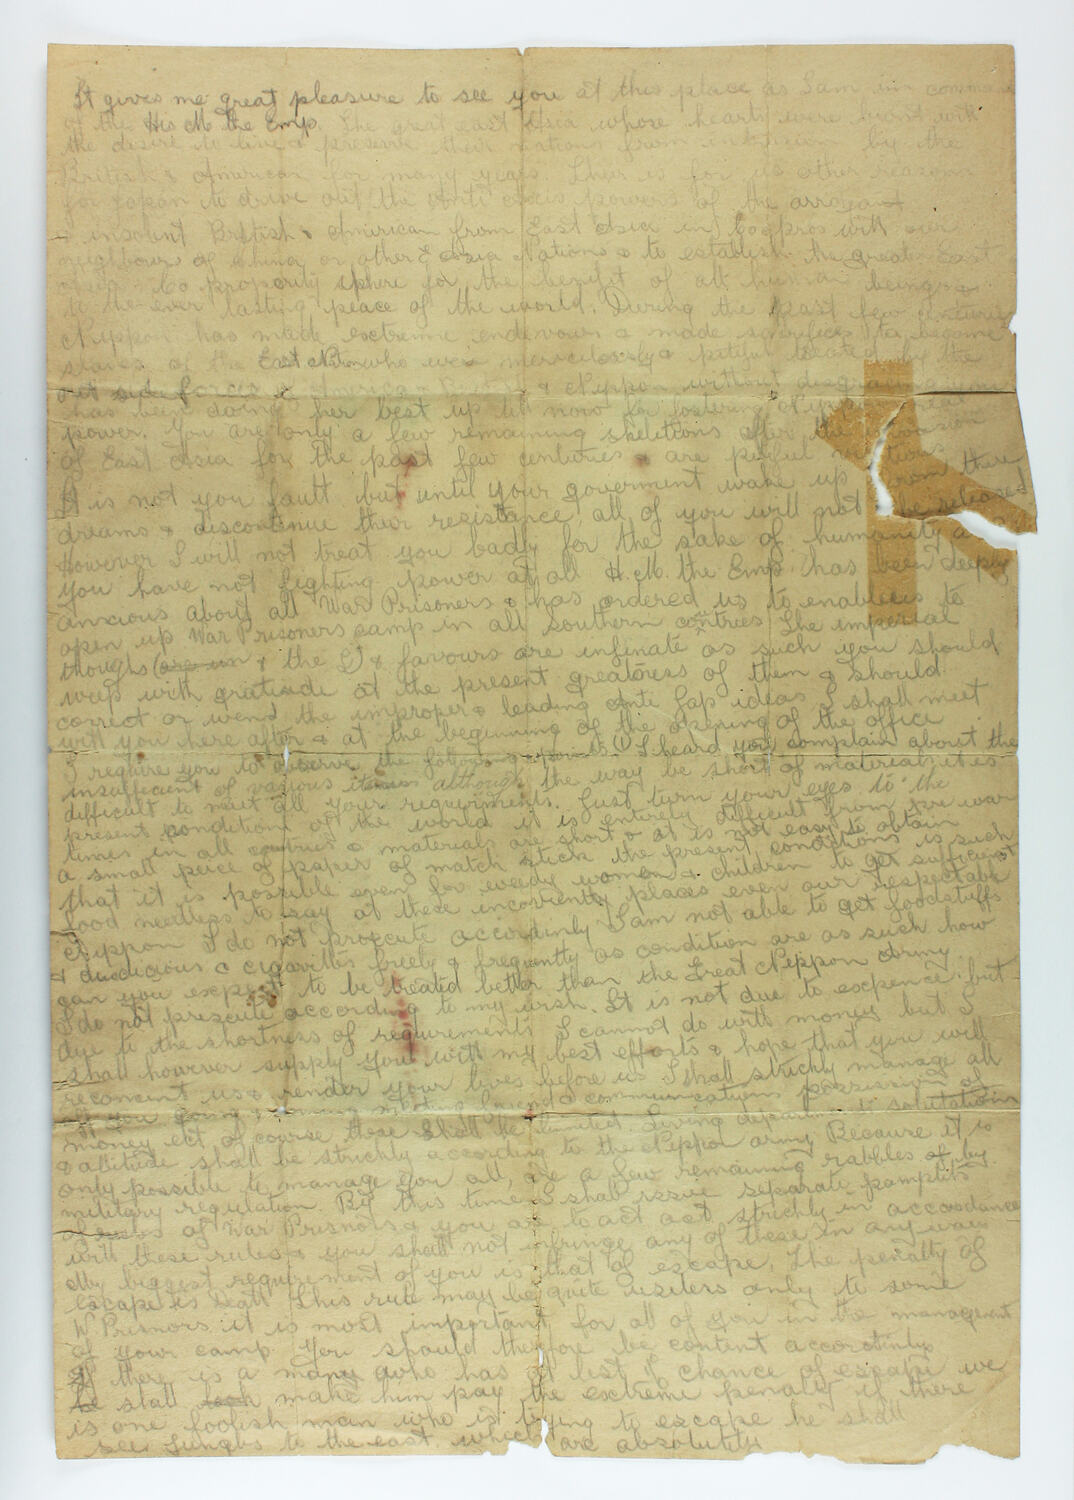 It gives me great pleasure to see you at this place as I am in command
of the His M the Emp. The great east Asia whose hearts were burnt with
the desire to live & preserve their nations from by the
British & American for many years. Their is for us other reason
for Japan to drive out the Anti axis powers of the arrogant
& insolent British & American from East Asia in with our
neighbours of China or other E Asia Nations & to establish the great East
Asia Co prosperity sphire for the benifit of all human beings &
to the ever lasting peace of the world. During the past few centuries
Nippon has made extreme endevours & made sacrifices to become
slaves of the East who were mercilessly & pitiful treated by the
out side forces of America & & Nippon without disgracing you
has been doing her best up till now for fostering Nippon great
power. You are only a few remaining skelitions after the invasion
of East Asia for the past few centuries & are pitiful victims
It is not you fault but until your goverment wake up from there
dreams & discontinue their resistance, all of you will not be released
However I will not treat you badly for the sake of humanity as
you have not fighting power at all H.M. the Emp. has been deeply
anxious about all War Prisoners & has ordered us to enable us to
open up War Prisoners camp in all southern contries The imperial
thoughs & the & favours are infinate as such you should
weep with gratitude at the present greatness of them & should
correct or mend the improper & leading Anti Jap ideas I shall meet
with you here after & at the beginning of the opening of the office
I require you to observe the following (1) I heard you complain about the
insufficent of various items although the way be short of material it is
difficult to meet all your requirments. Just turn your eyes to the
present conditions of the world it is entirely difficult from pre war
times in all contries & materials are short & it is not easy to obtain
a small peice of paper of match stick the present conditions is such
that it is possible even for weedy women & children to get sufficient
food needless to say at these places even our respectable
Nippon I do not accordinly I am not able to get foodstuffs
& & cigarettes freely & frequently as condition are as such how
can you expect to be treated better than the Great Nippon Army
I do not according to my wish. It is not due to expence but
due to the shortness of requirements I cannot do with money but I
shall however supply you with my best efforts & hope that you will
& render your lives before us I shall strictly manage all
of you going & coming meeting friend & communications possession of
money ect of course these shall be limited. Living department salutation
& attitude shall be strictly according to the Nippon army Because it is
only possible to manage you all, are a few remaining rabbles of by
military regulation. By this time I shall issue separate pamplits
of War Prisnors & you are to act act strictly in accordance
with these rules & you shall not infringe any of these in any way
My biggest requirement of you is that of escape. The penalty of
escape is death This rule may be quite only to some
W Prisnors it is most important for all of you in the management
of your camp. You should therefore be content accordinly
If there is a many who has at lest % chance of escape we
shall make him pay the extreme penalty if there
is one foolish man who is trying to escape he shall
see Jungles to the east which are absolutily